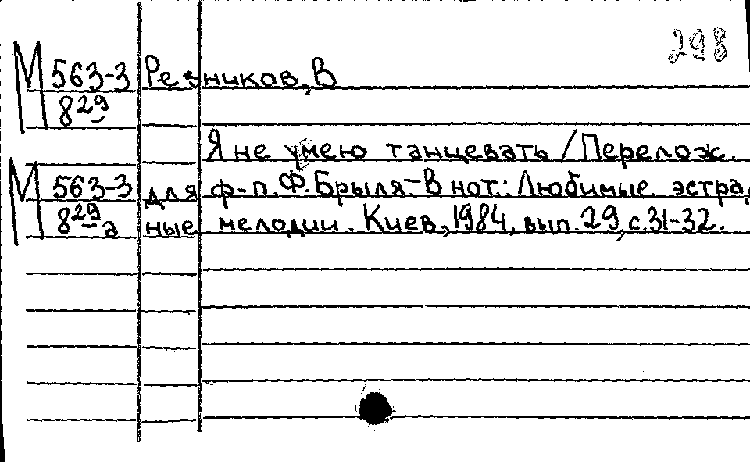 298
М 563-3 Резников, В
8 29
Я не умею танцевать / Перелож.
М 563-3 для ф-п. Ф. Брыля.- В нот.: Любимые эстрад
8 29 а ные мелодии. Киев, 1984, вып. 29, с. 31-32.